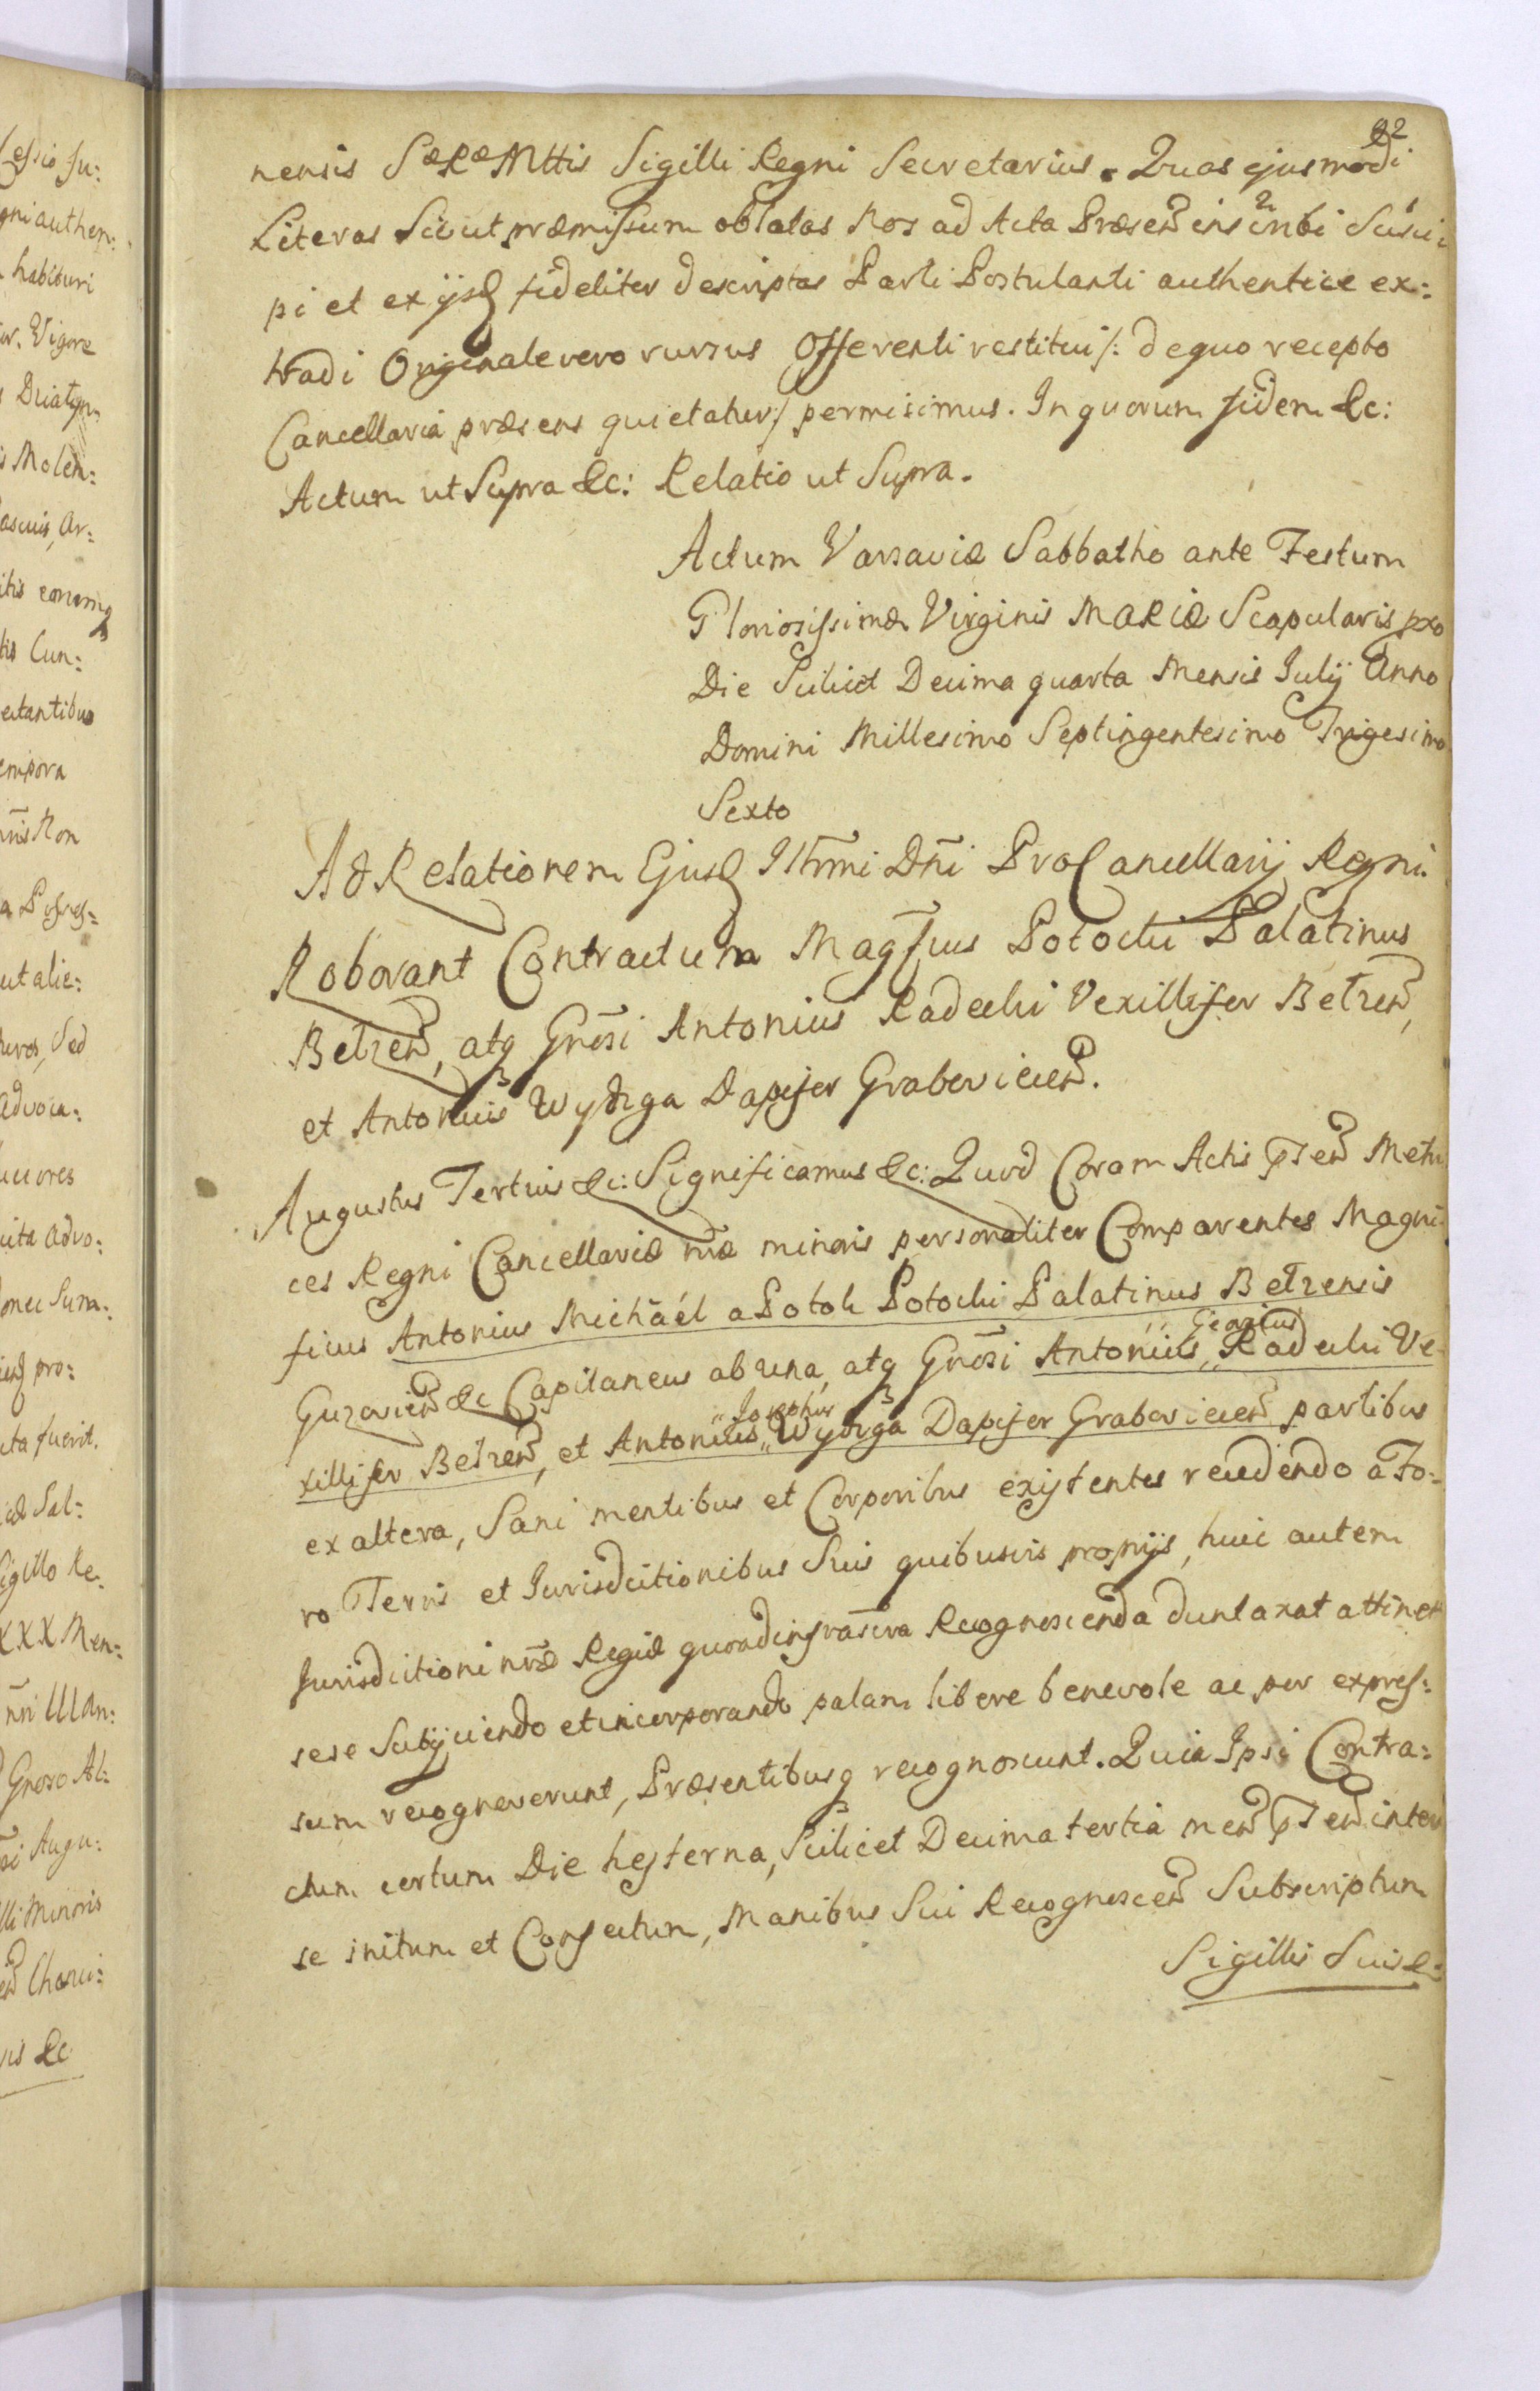 92
nensis SæRæMttis Sigilli Regni Secretarius. Quas ejusmodi
Literas Sicut præmissum oblatas Nos ad Acta Præsen Susci
pi et ex ijsd fideliter descriptas Parti Postulanti authentice ex:
tradi Originale vero rursus Offerenti restitui /: de quo recepto
Cancellaria præsens quietatur:/ permisimus. In quorum fidem &c:
Actum ut Supra &c: Relatio ut Supra.
Actum Varsaviæ Sabbatho ante Festum
Gloriosissimæ Virginis MARIÆ Scapularis pxo
Die Scilicet Decima quarta Mensis Julij Anno
Domini Millesimo Septingentesimo Trigesimo
Sexto
Ad Relationem Ejusd Illmi Dni ProCancellarij Regni.
Roborant Contractum Magfcus Potocki Palatinus
Belzen, atq Gnosi Antonius Radecki Vexillifer Belzen,
et Antonius Wydzga Dapifer Graboviecen.
Augustus Tertius &c: Significamus &c: Quod Coram Actis Metri
ces Regni Cancellariæ nræ minoris personaliter Comparentes Magni:
ficus Antonius Michaël a Potok Potocki Palatinus Belzensis
Guzovien &c Capitaneus ab una, atq Gnosi Antonius,, Radecki Ve
,, Josephus
xillifer Belzen, et Antonius,, Wydzga Dapifer Graboviecen partibus
ex altera, Sani mentibus et Corporibus existentes recedendo a Fo:
ro Terris et Jurisdictionibus Suis quibusvis proprijs, huic autem
Jurisdictioni nræ Regiæ quoad infrascra Recognoscenda duntaxat attinet
sese Subijciendo et incorporando palam libere benevole ac per expres:
sum recognoverunt, Præsentibusq recognoscunt. Quia Ipsi Contra:
ctum certum Die hesterna, Scilicet Decima tertia men inter
se initum et Confectum, Manibus Sui Recognoscen Subscriptum
Sigillis Suis &: